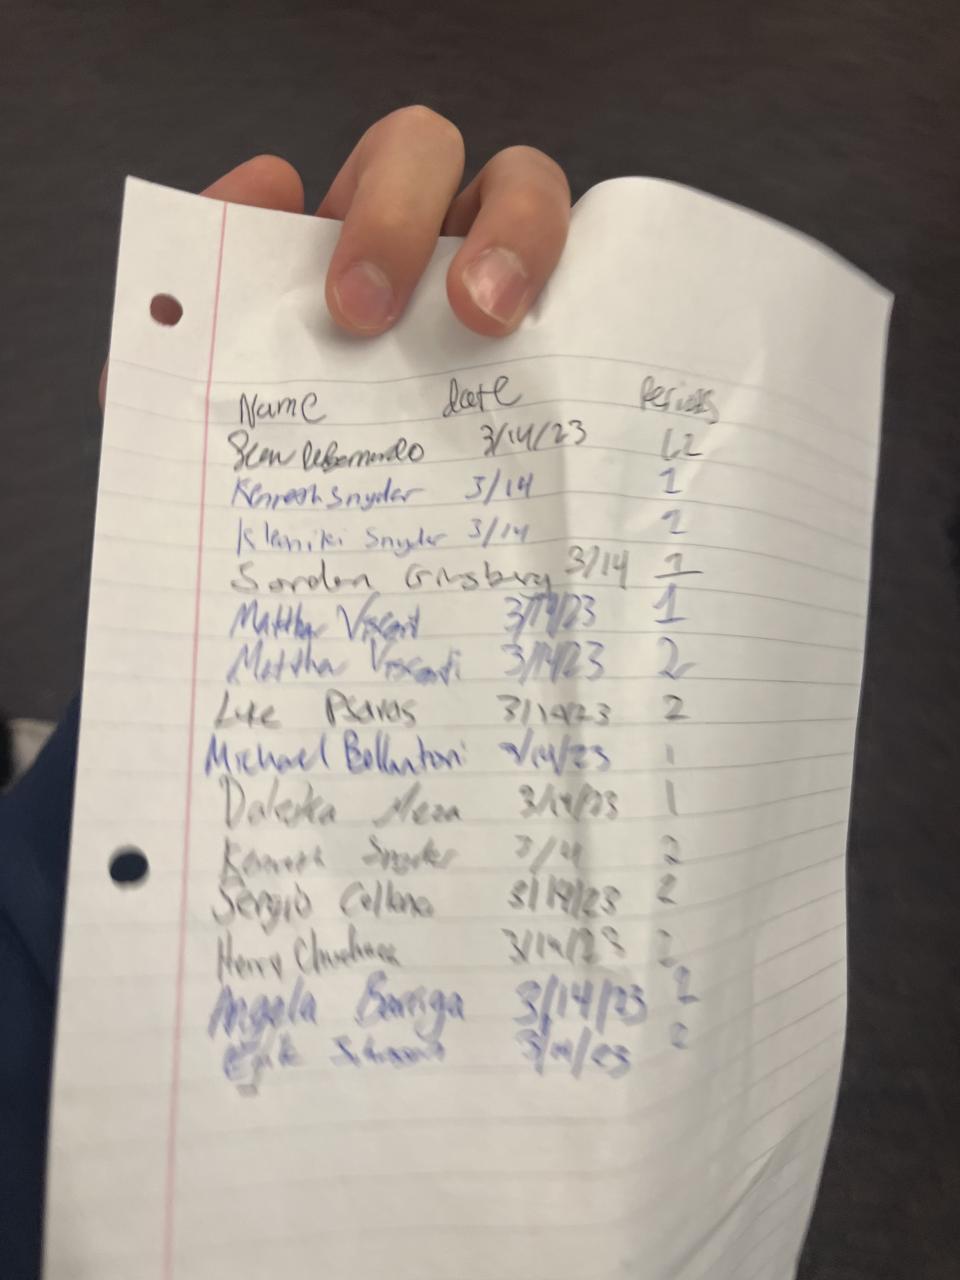 Name date Periods
Sean DeBernardo 3/14/23 1,2
Kenneth Snyder 3/14 1
Snyder 3/14 2
Jordan Ginsberg 3/14 1
Matthew Visconti 3/14/23 1
Matthew Visconti 3/14/23 2
Luke Psaras 3/14/23 2
Michael Bellantoni 3/14/23 1
Meza 3/14/23 1
Kenneth Snyder 3/14 2
Sergio 3/14/23 2
Henry 3/14/23 2
Angela Barriga 3/14/23 2
Erik 3/14/23 2